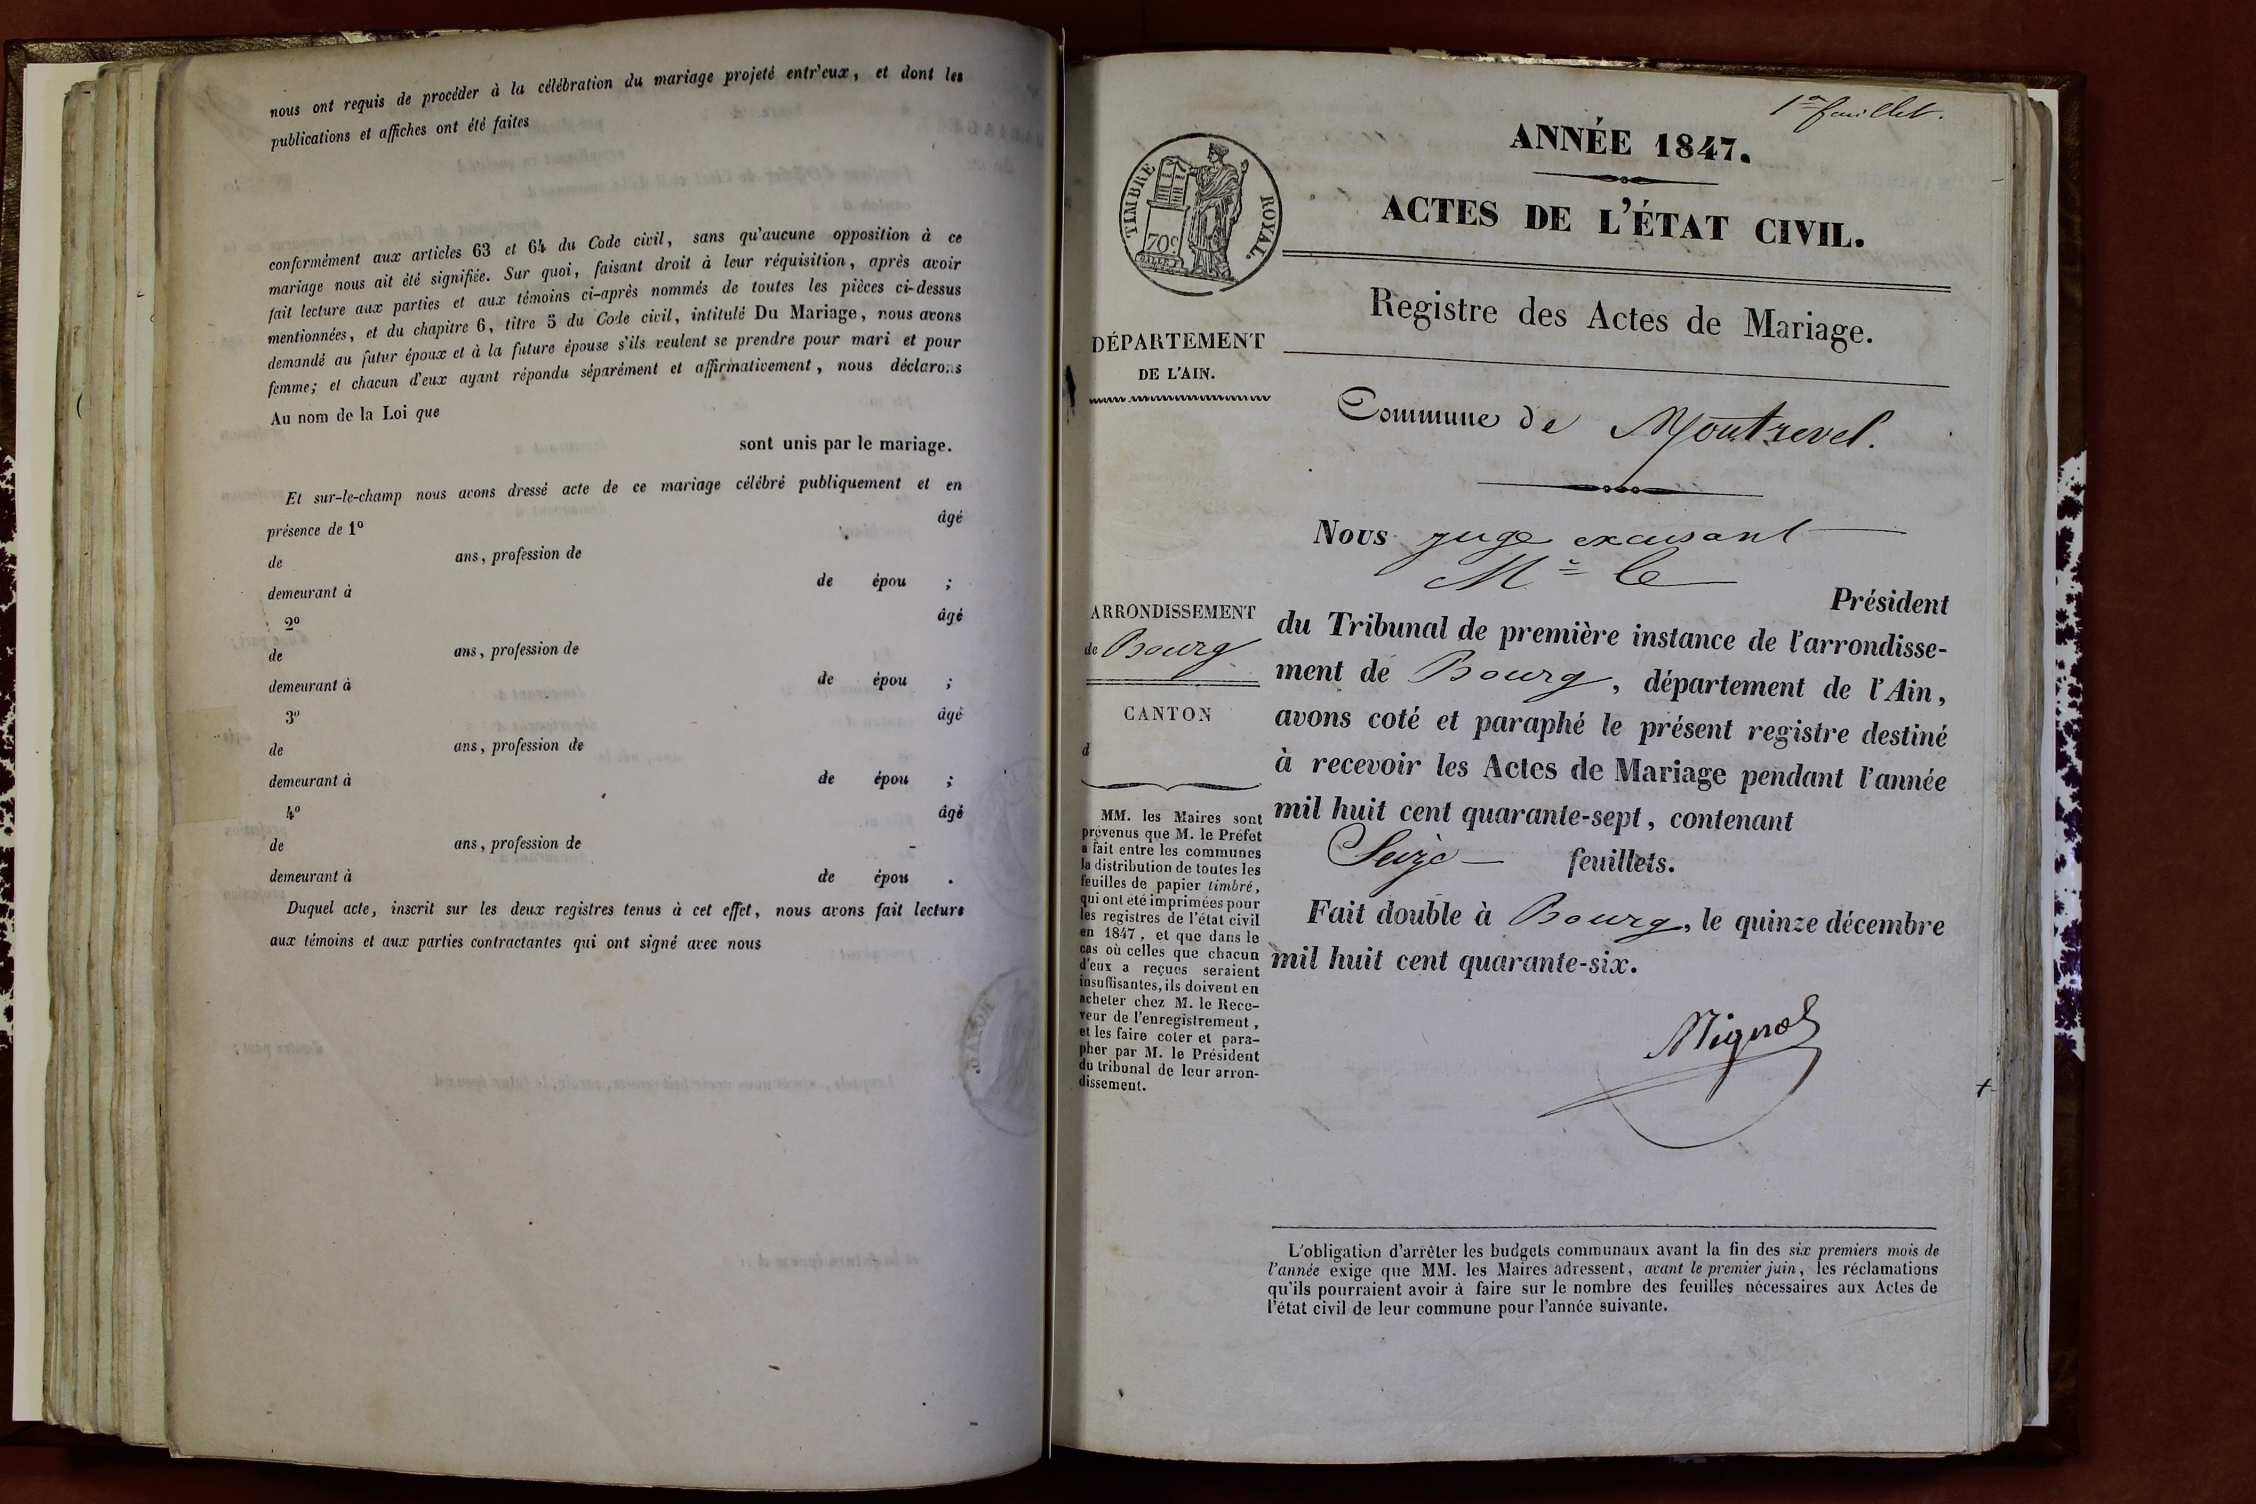 nous ont requis de procéder à la célébration du mariage projeté entr'eux, et dont les
publications et affiches ont été faites
conformément aux articles 63 et 64 du Code civil, sans qu'aucune opposition à ce
mariage nous ait été signifiée. Sur quoi, faisant droit à leur réquisition, après avoir
fait lecture aux parties et aux témoins ci-après nommés de toutes les pièces ci-dessus
mentionnées, et du chapitre 6, titre 5 du Code civil, intitulé Du Mariage, nous avons
demandé au futur époux et à la future épouse s'ils veulent se prendre pour mari et pour
femme; et chacun d'eux ayant répondu séparément et affirmativement, nous déclarons
Au nom de la Loi que
sont unis par le mariage.
Et sur-le-champ nous avons dressé acte de ce mariage célébré publiquement et en
présence de 1º âgé
de ans, profession de
demeurant à de épou ;
2º âgé
de ans, profession de
demeurant à de épou ;
3º âgé
de ans, profession de
demeurant à de épou ;
4º âgé
de ans, profession de
demeurant à de épou .
Duquel acte, inscrit sur les deux registres tenus à cet effet, nous avons fait lecture
aux témoins et aux parties contractantes qui ont signé avec nous
1er feuillet.
ANNÉE 1847.
ACTES DE L'ÉTAT CIVIL.
TIMBRE ROYAL.
70c
Registre des Actes de Mariage.
DÉPARTEMENT
DE L'AIN.
Commune de Montrevel.
Nous juge excusant
Mr le
Président
du Tribunal de première instance de l'arrondisse-
ment de Bourg, département de l'Ain,
avons coté et paraphé le présent registre destiné
à recevoir les Actes de Mariage pendant l'année
mil huit cent quarante-sept, contenant
Seize feuillets.
Fait double à Bourg, le quinze décembre
mil huit cent quarante-six.
ARRONDISSEMENT
de Bourg
CANTON
d
MM. les Maires sont
prévenus que M. le Préfet
a fait entre les communes
la distribution de toutes les
feuilles de papier timbré,
qui ont été imprimées pour
les registres de l'état civil
en 1847, et que dans le
cas où celles que chacun
d'eux a reçues seraient
insuffisantes, ils doivent en
acheter chez M. le Rece-
veur de l'enregistrement,
et les faire coter et para-
pher par M. le Président
du tribunal de leur arron-
dissement.
L'obligation d'arrêter les budgets communaux avant la fin des six premiers mois de
l'année exige que MM. les Maires adressent, avant le premier juin, les réclamations
qu'ils pourraient avoir à faire sur le nombre des feuilles nécessaires aux Actes de
l'état civil de leur commune pour l'année suivante.